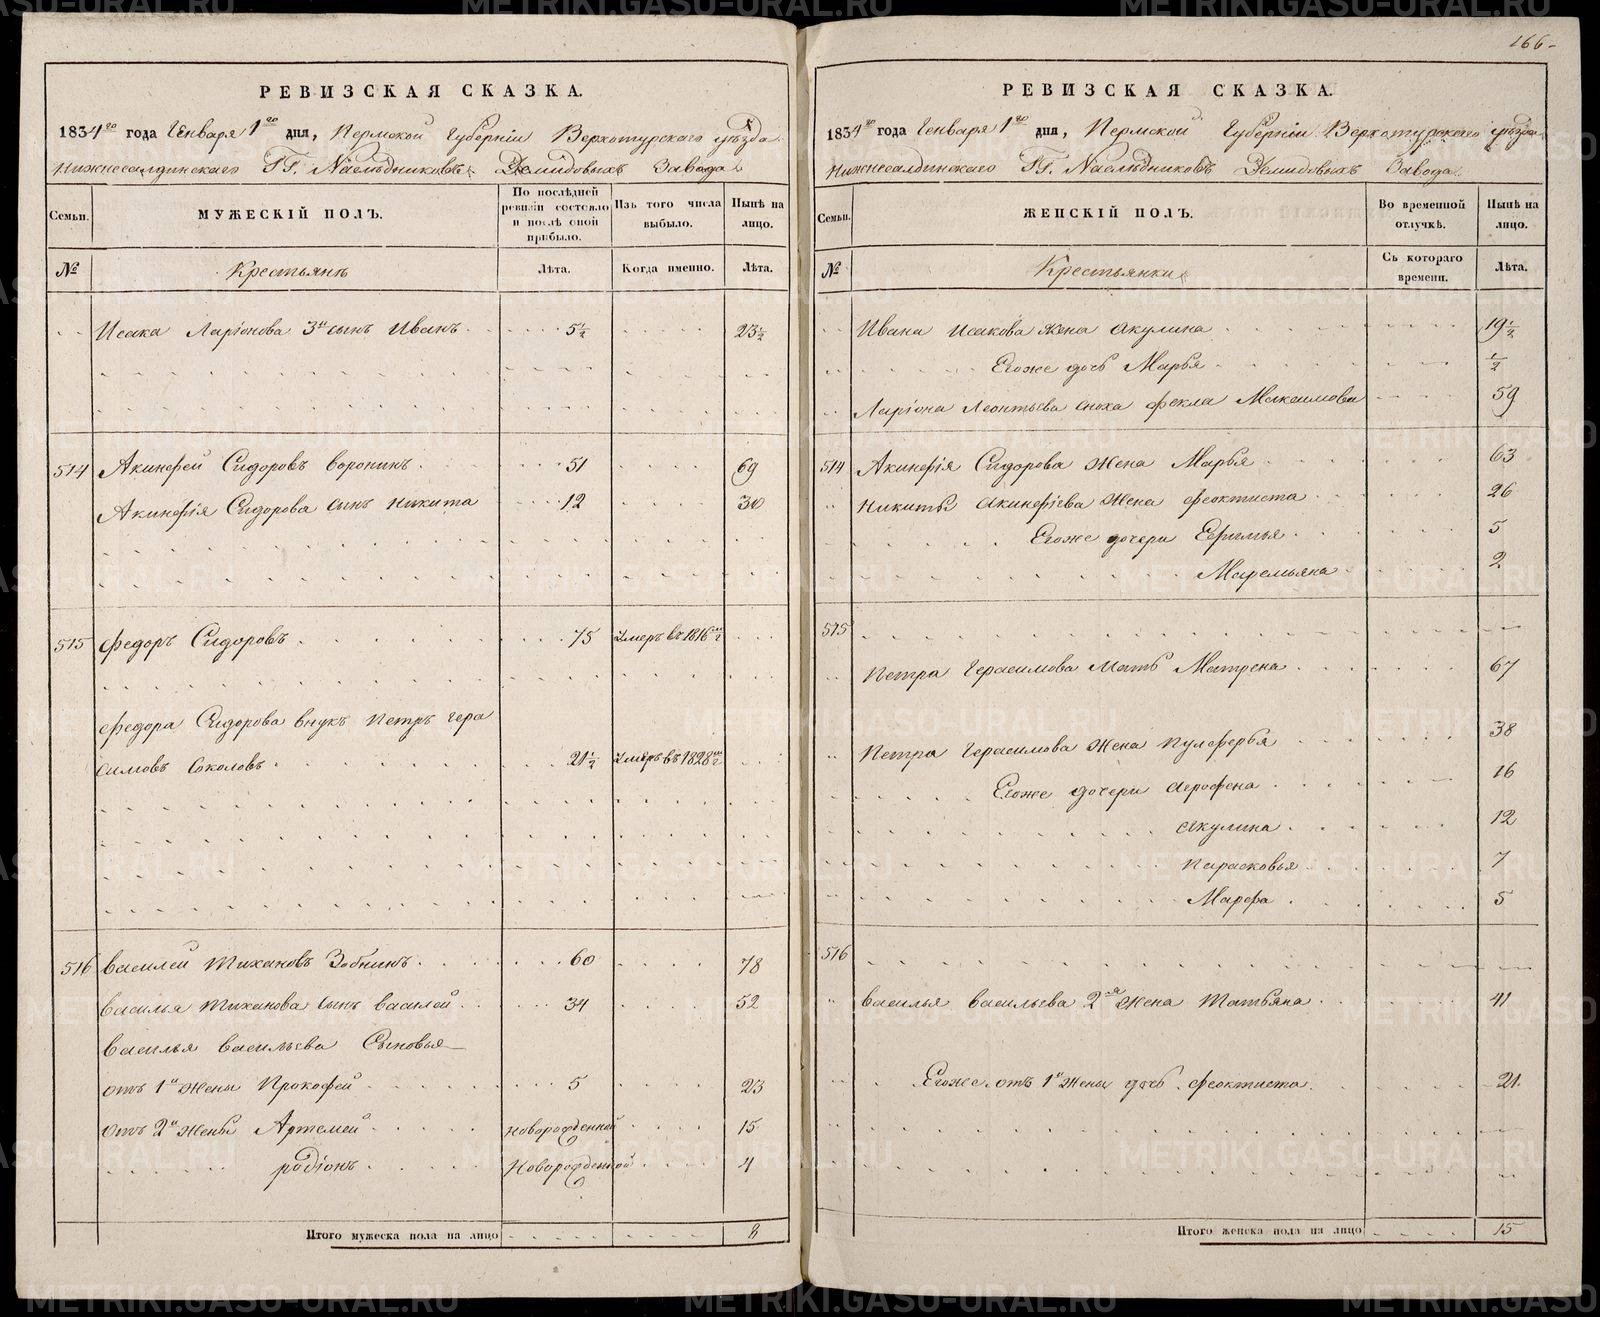 166
РЕВИЗСКАЯ СКАЗКА.
1834го года Генваря 1го дня, Пермской Губерніи Верхотурскаго уѣзда
Нижнесалдинскаго ГГ. Наслѣдниковъ Демидовыхъ Завода
Семьи.
МУЖЕСКІЙ ПОЛЪ.
По послѣдней ревизіи состояло и послѣ оной прибыло.
Изъ того числа выбыло.
Нынѣ на лицо.
№
Крестьянъ
Лѣта.
Когда именно.
Лѣта.
Исака Ларіонова 3й сынъ Иванъ 5½ 23½
514 Акинфей Сидоровъ Воронинъ 51 69
Акинфія Сидорова сынъ Никита 12 30
515 Федоръ Сидоровъ 75 Умеръ въ 1816мъ
Федора Сидорова внукъ Петръ Гера
симовъ Соколовъ 21½ Умеръ въ 1828мъ
516 Василей Тихановъ Зобнинъ 60 78
Василья Тиханова сынъ Василей 34 52
Василья Васильева Сыновья
отъ 1й жены Прокофей 5 23
отъ 2й жены Артемей новорожденной 15
родіонъ Новорожденной 4
Итого мужеска пола на лицо 8
РЕВИЗСКАЯ СКАЗКА.
1834го года Генваря 1го дня, Пермской Губерніи Верхотурскаго уѣзда
Нижнесалдинскаго ГГ. Наслѣдниковъ Демидовыхъ Завода
Семьи.
ЖЕНСКІЙ ПОЛЪ.
Во временной отлучкѣ.
Нынѣ на лицо.
№
Крестьянки
Съ котораго времени.
Лѣта.
Ивана Исакова жена Акулина 19½
Егоже дочь Марья ½
Ларіона Леонтьева сноха Фекла Максимова 59
514 Акинфія Сидорова жена Марья 63
Никиты Акинфіева жена Феоктиста 26
Егоже дочери Ефимья 5
Маремьяна 2
515
Петра Герасимова мать Матрена 67
Петра Герасимова жена Пулферья 38
Егоже дочери Агрофена 16
Акулина 12
Парасковья 7
Марфа 5
516
Василья Васильева 2я жена Татьяна 41
Егоже отъ 1й жены дочь Феоктиста 21
Итого женска пола на лицо 15